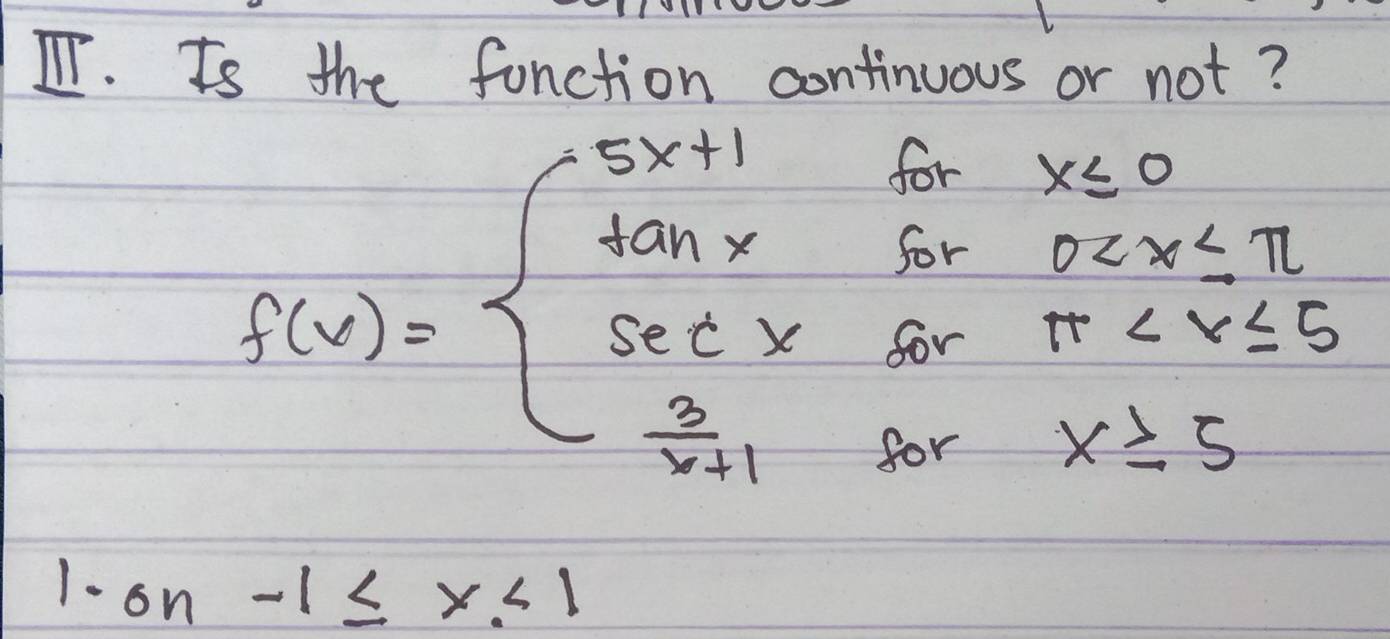 III. Is the function continuous or not?
5x+1 for x ≤ 0
tan x for 0 < x ≤ π
f(x) =
sec x for π < x ≤ 5
3/(x+1) for x ≥ 5
1. on -1 ≤ x ≤ 1